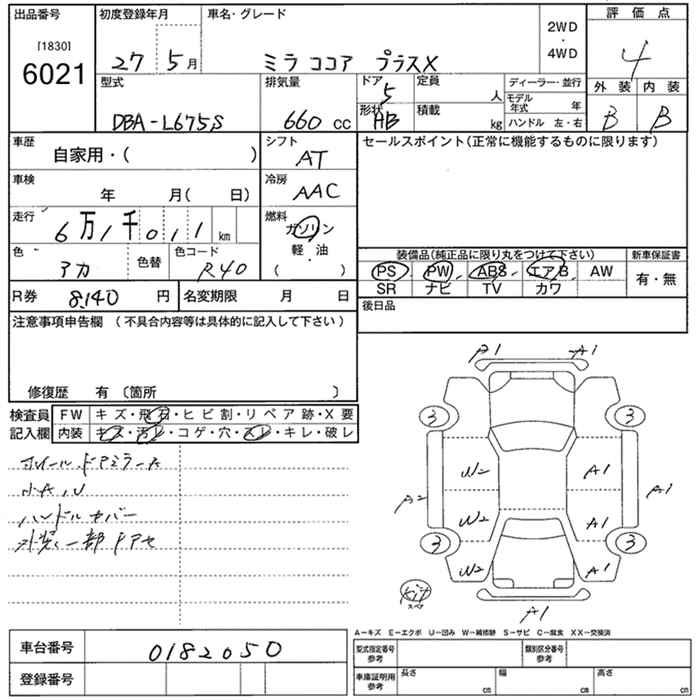 出品番号 初度登録年月 車名・グレード 2WD・4WD 評価点
[1830]
6021
27 5月 ミラ ココア プラスX 4
型式 排気量 ドア 定員 ディーラー・並行 外装 内装
5 人 モデル年式 年
DBA-L675S 660 cc 形状 HB 積載 kg ハンドル 左・右 B B
車歴 シフト セールスポイント(正常に機能するものに限ります)
自家用・( ) AT
車検 冷房
年 月( 日) AAC
走行 燃料
6万1千011km ガソリン
軽・油
・
( )
色 色替 色コード
アカ R40
装備品(純正品に限り丸をつけて下さい) 新車保証書
PS PW ABS エアB AW 有・無
SR ナビ TV カワ
R券 8,140 円 名変期限 月 日 後日品
注意事項申告欄 (不具合内容等は具体的に記入して下さい)
修復歴 有 〔箇所 〕
検査員 FW キズ・飛石・ヒビ割・リペア跡・X要
記入欄 内装 キズ・汚レ・コゲ・穴・スレ・キレ・破レ
ホイール、ドアミラーA
小A、U
ハンドルカバー
外装一部
A1 A1
3 3
W2 A1
A2 A1
W2 A1
3 3
W2 A1
kit
スペア
A1
A-キズ E-エクボ U-凹み W-補修跡 S-サビ C-腐食 XX-交換済
車台番号 0182050
型式指定番号 参考 類別区分番号 参考
登録番号
車庫証明用 参考 長さ cm 幅 cm 高さ cm